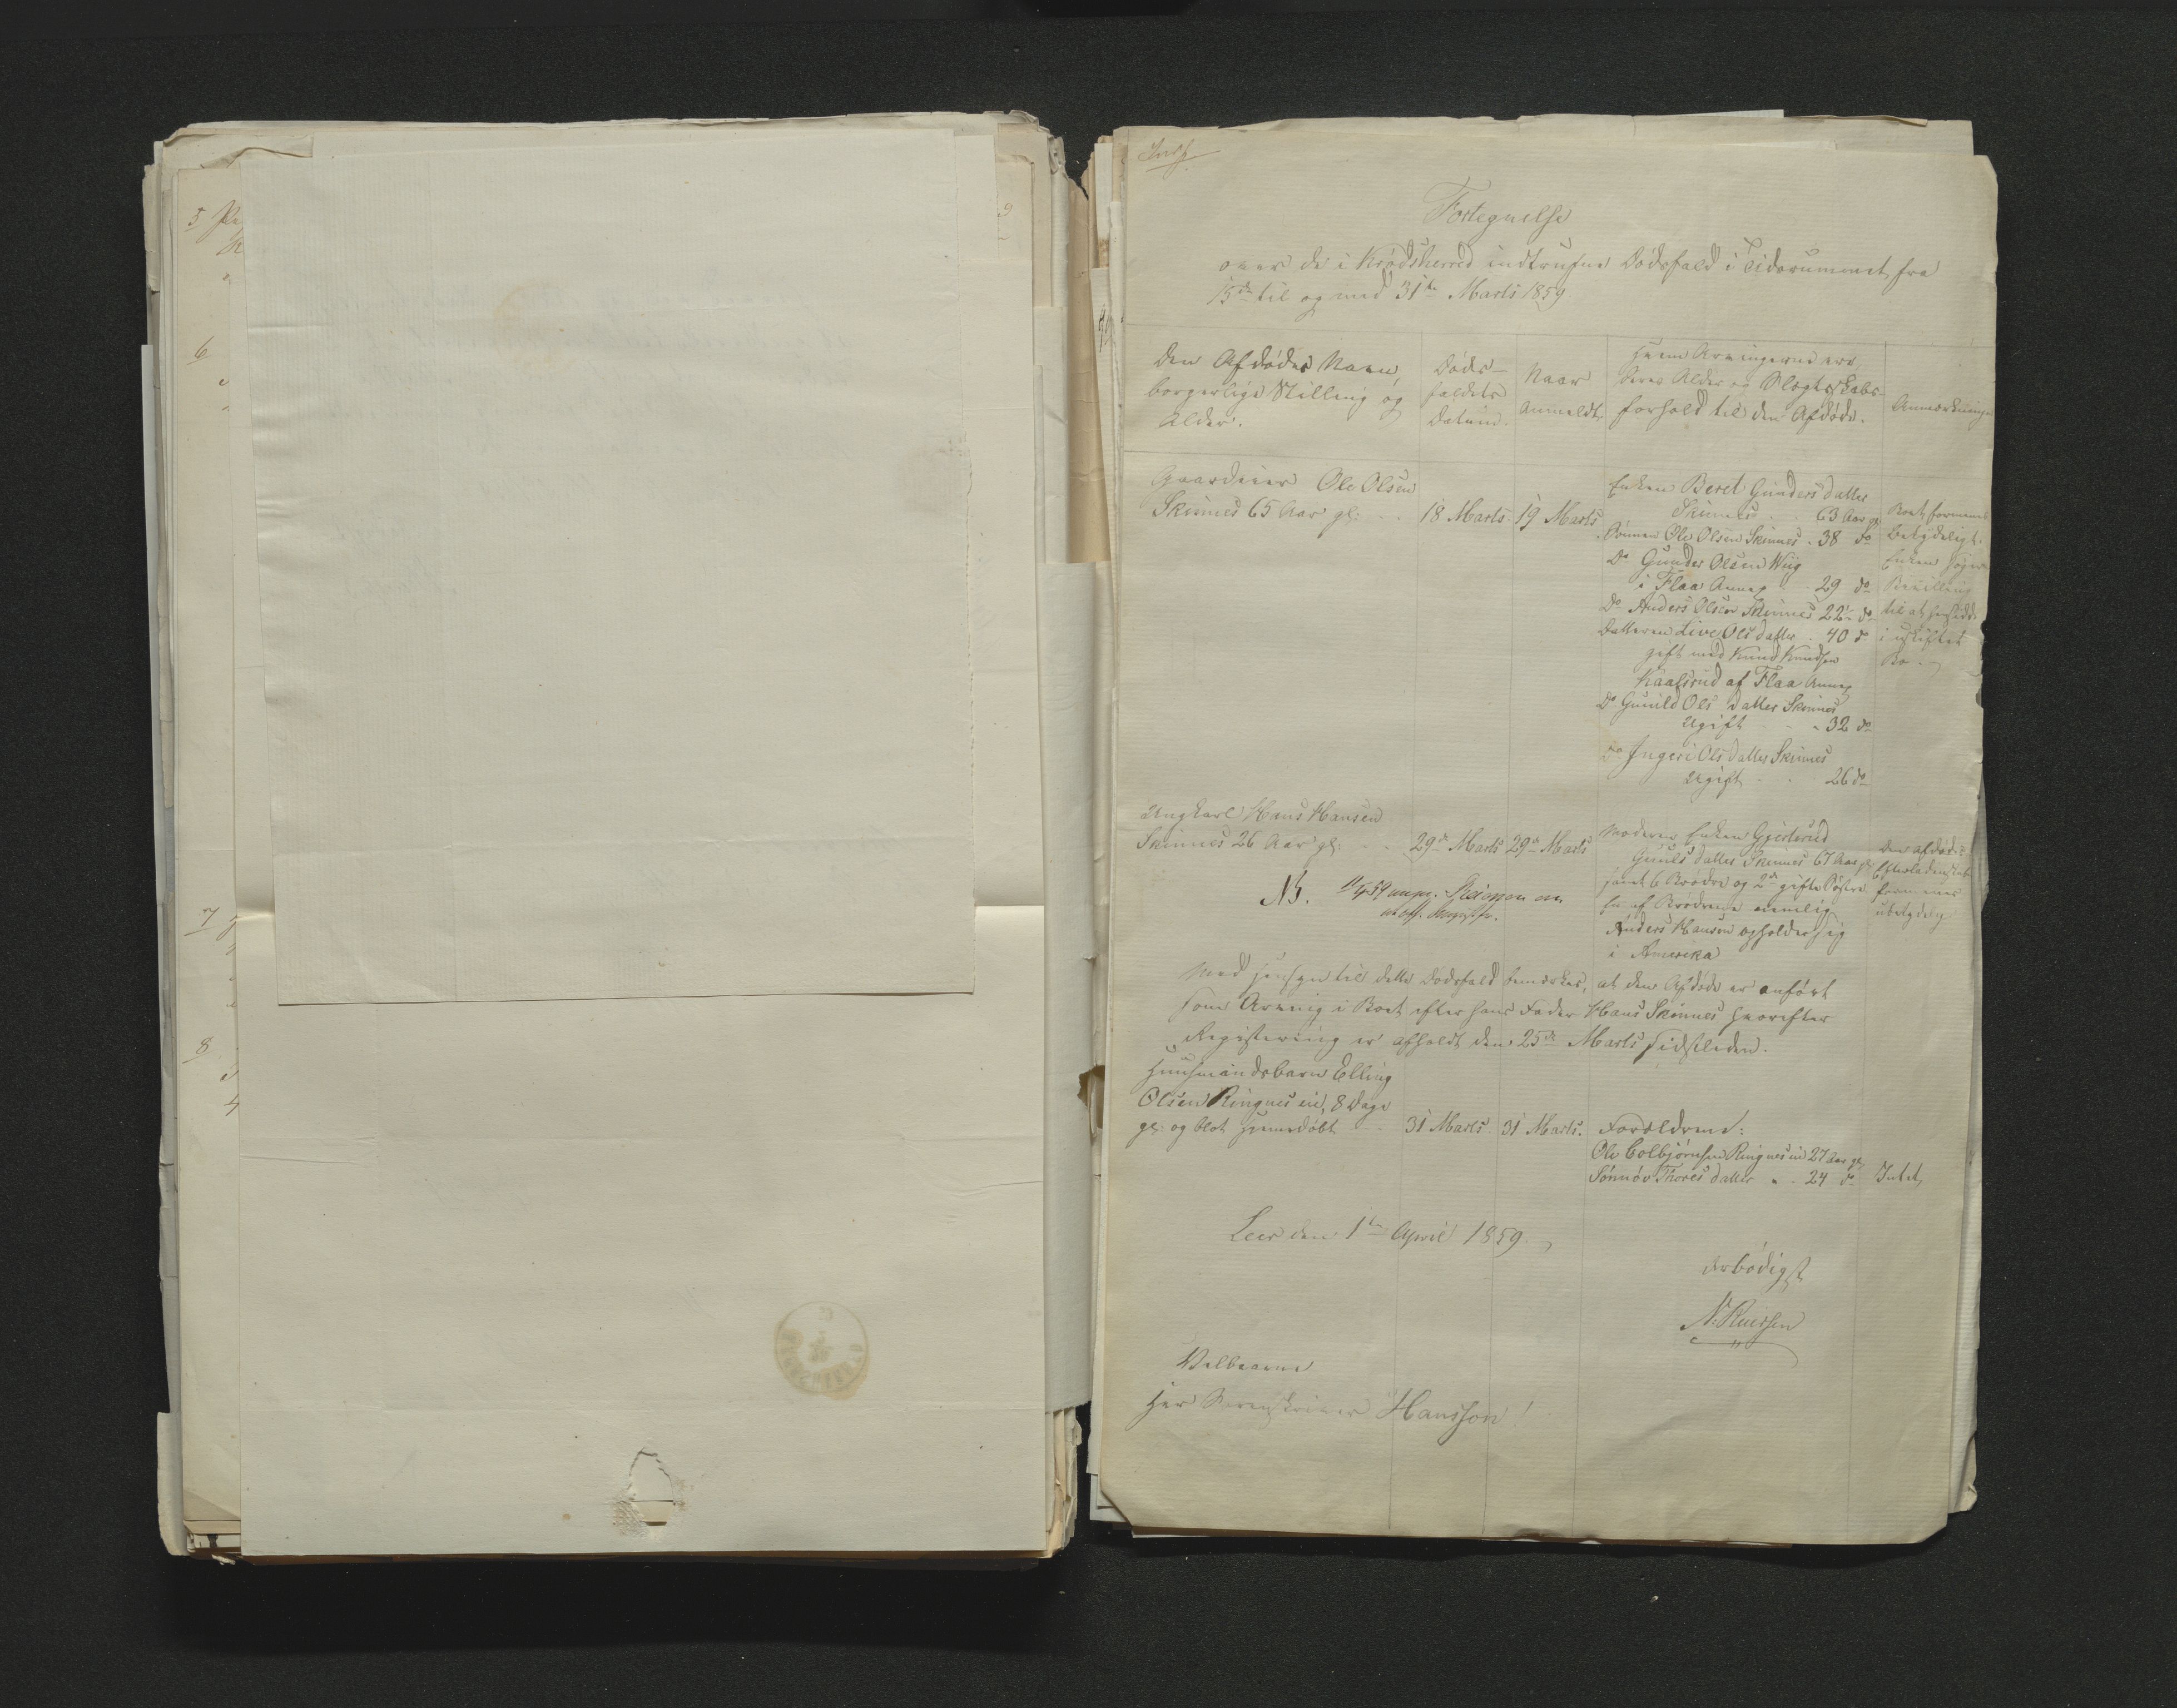 5
6
7
8
Indf.
Fortegnelse
over de i Krødsherred indtrufne Dødsfald i Tidsrummet fra
15de til og med 31te Marts 1859
Den Afdødes Navn,
borgerlige Stilling og
Alder.
Døds-
faldets
Datum.
Naar
Anmeldt
Hvem Arvingerne ere,
deres Alder og Slægtskabs-
forhold til den Afdøde.
Anmærkninger
Gaardeier Ole Olsen
Skinnes 65 Aar gl:
18 Marts
19 Marts
Enken Beret Gundersdatter
Skinnes . . 63 Aar gl
Sønnen Ole Olsen Skinnes . 38 do
Do Gunder Olsen Wiig
i Flaa Annex . 29 do
Do Anders Olsen Skinnes 22 do
Datteren Live Olsdatter . 40 do
gift med Knud Knudsen
Kaasrud af Flaa Annex
Do Gunild Olsdatter Skinnes
Ugift . . 32 do
Do Ingeri Olsdatter Skinnes
Ugift . . 26 do
Boet formenes
betydeligt.
Enken søger
Bevilling
til at hensidde
i uskiftet
Bo.
Ungkarl Hans Hansen
Skinnes 26 Aar gl:
29de Marts
29de Marts
Moderen Enken Gjertrud
Gunilsdatter Skinnes 67 Aar gl
samt 6 Brødre og 2de gifte Søstre
En af Brødrene nemlig
Anders Hansen opholder sig
i Amerika
Den afdødes
Efterladenskab
formenes
ubetydelig
NB.
Med Hensyn til dette Dødsfald bemærkes, at den Afdøde er anført
som Arving i Boet efter hans Fader Hans Skinnes hvorefter
Registrering er afholdt den 25de Marts sidstleden.
Huusmandsbarn Elling
Olsen Ringnes eie, 8 Dage
gl: og blot hjemmedøbt
31 Marts.
31 Marts.
Forældrene:
Ole Colbjørnsen Ringnes eie 27 Aar gl
Sønnøv Thoresdatter . . 24 do
Intet
Leer den 1te April 1859.
Ærbødigst
N: Ruissen
Velbaarne
Herr Sorenskriver Hansson!